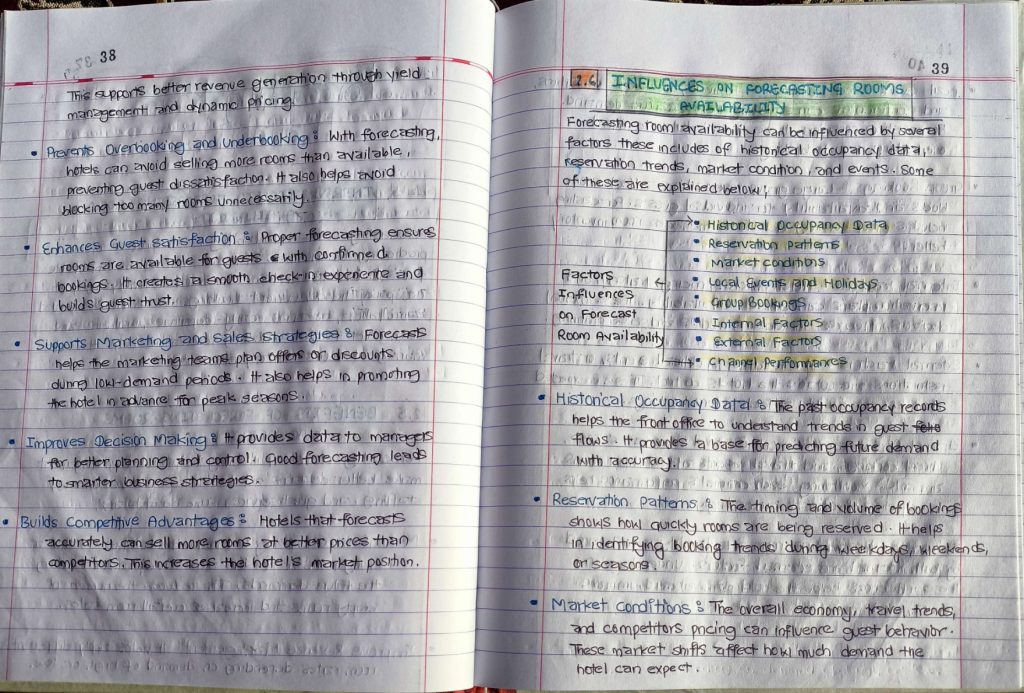 38
This supports better revenue generation through yield
management and dynamic pricing.
• Prevents Overbooking and underbooking : With forecasting,
hotels can avoid selling more rooms than available,
preventing guest dissatisfaction. It also helps avoid
blocking too many rooms unnecessarily.
• Enhances Guest Satisfaction : Proper forecasting ensures
rooms are available for guests with confirmed
bookings. It creates a smooth check-in experience and
builds guest trust.
• Supports Marketing and Sales Strategies : Forecasts
helps the marketing teams plan offers or discounts
during low-demand periods. It also helps in promoting
the hotel in advance for peak seasons.
• Improves Decision Making : It provides data to managers
for better planning and control. Good forecasting leads
to smarter business strategies.
• Builds Competitive Advantages : Hotels that forecasts
accurately can sell more rooms at better prices than
competitors. This increases the hotel's market position.
39
2.6 INFLUENCES ON FORECASTING ROOMS
AVAILABILITY
Forecasting room availability can be influenced by several
factors these includes of historical occupancy data,
reservation trends, market condition, and events. Some
of these are explained below:
Factors
Influences
on Forecast
Room Availability
• Historical Occupancy Data
• Reservation Patterns
• Market conditions
• Local Events and Holidays
• Group Bookings
• Internal Factors
• External Factors
• Channel Performances
• Historical Occupancy Data : The past occupancy records
helps the front office to understand trends in guest
flows. It provides a base for predicting future demand
with accuracy.
• Reservation Patterns : The timing and volume of bookings
shows how quickly rooms are being reserved. It helps
in identifying booking trends during weekdays, weekends,
or seasons.
• Market Conditions : The overall economy, travel trends,
and competitors pricing can influence guest behavior.
These market shifts affect how much demand the
hotel can expect.